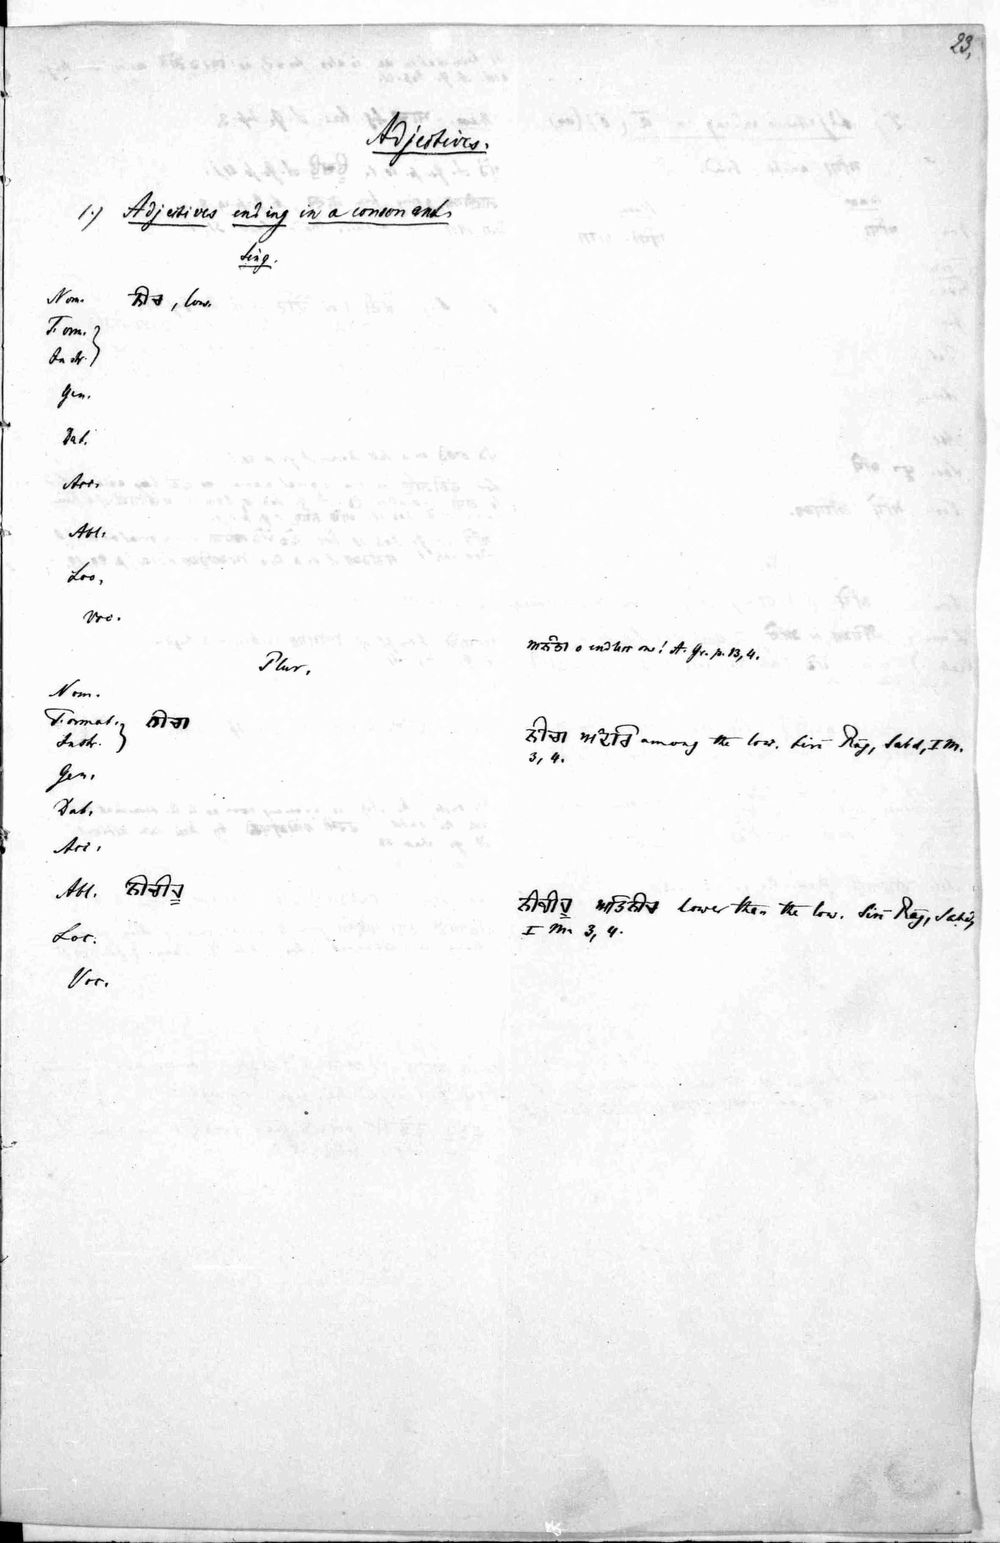 23.
Adjectives.
1.) Adjectives ending in a consonant.
Sing.
Nom. ਨੀਚ, low.
Form.
Instr.
Gen.
Dat.
Acc.
Abl.
Loc.
Voc.
ਅਨੰਤਾ o endless one! A. Gr. p. 13, 4.
Plur.
Nom.
Format. ਨੀਚਾ
Instr.
ਨੀਚਾ ਅੰਦਰਿ among the low. Sirī Rāg, Sabd, I M.
3, 4.
Gen.
Dat.
Acc.
Abl. ਨੀਚੀਹੂ
ਨੀਚੀਹੂ ਅਤਿਨੀਚ Lower than the low. Sirī Rāg, Sabd,
I M. 3, 4.
Loc.
Voc.